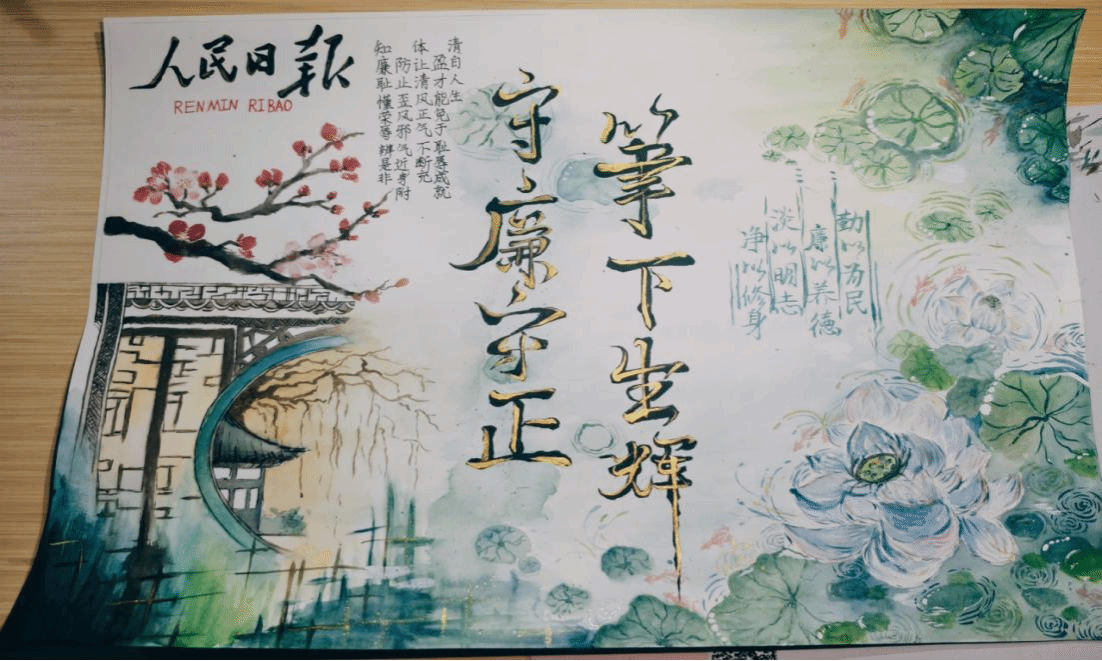 人民日报
RENMIN RIBAO
知廉耻懂荣辱辨是非
防止歪风邪气近身附
体让清风正气不断充
盈才能免于耻辱成就
清自人生
筆下生辉
守廉守正
勤以为民
廉以养德
淡以明志
净以修身